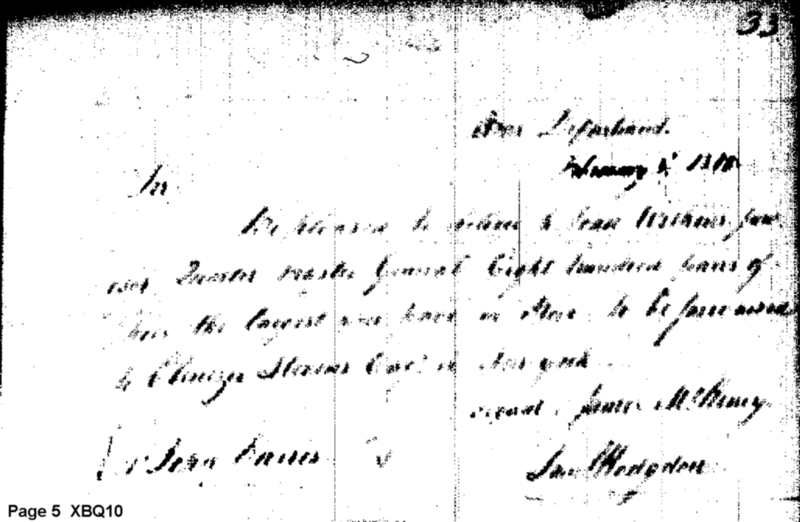 33
War Department.
February 5th 1800
Sir
Be pleased to deliver to John Wilkins Jun.
esq. Quarter Master General Eight hundred pairs of
shoes the largest you have in Store to be forwarded
to Ebenezer Stevens Esq. at New york
signed. James McHenry
John Harris
Saml Hodgdon
Page 5 XBQ10